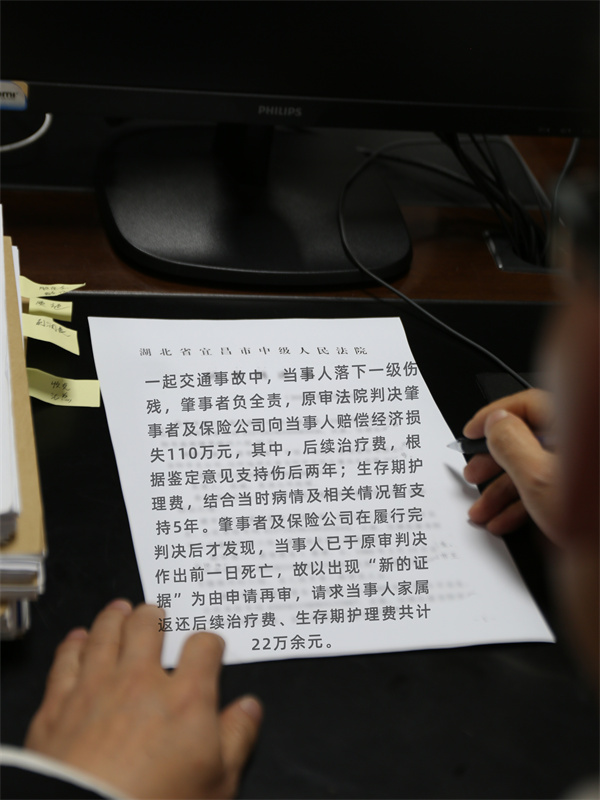 PHILIPS
湖北省宜昌市中级人民法院
一起交通事故中，当事人落下一级伤
残，肇事者负全责，原审法院判决肇
事者及保险公司向当事人赔偿经济损
失110万元，其中，后续治疗费，根
据鉴定意见支持伤后两年；生存期护
理费，结合当时病情及相关情况暂支
持5年。肇事者及保险公司在履行完
判决后才发现，当事人已于原审判决
作出前一日死亡，故以出现“新的证
据”为由申请再审，请求当事人家属
返还后续治疗费、生存期护理费共计
22万余元。